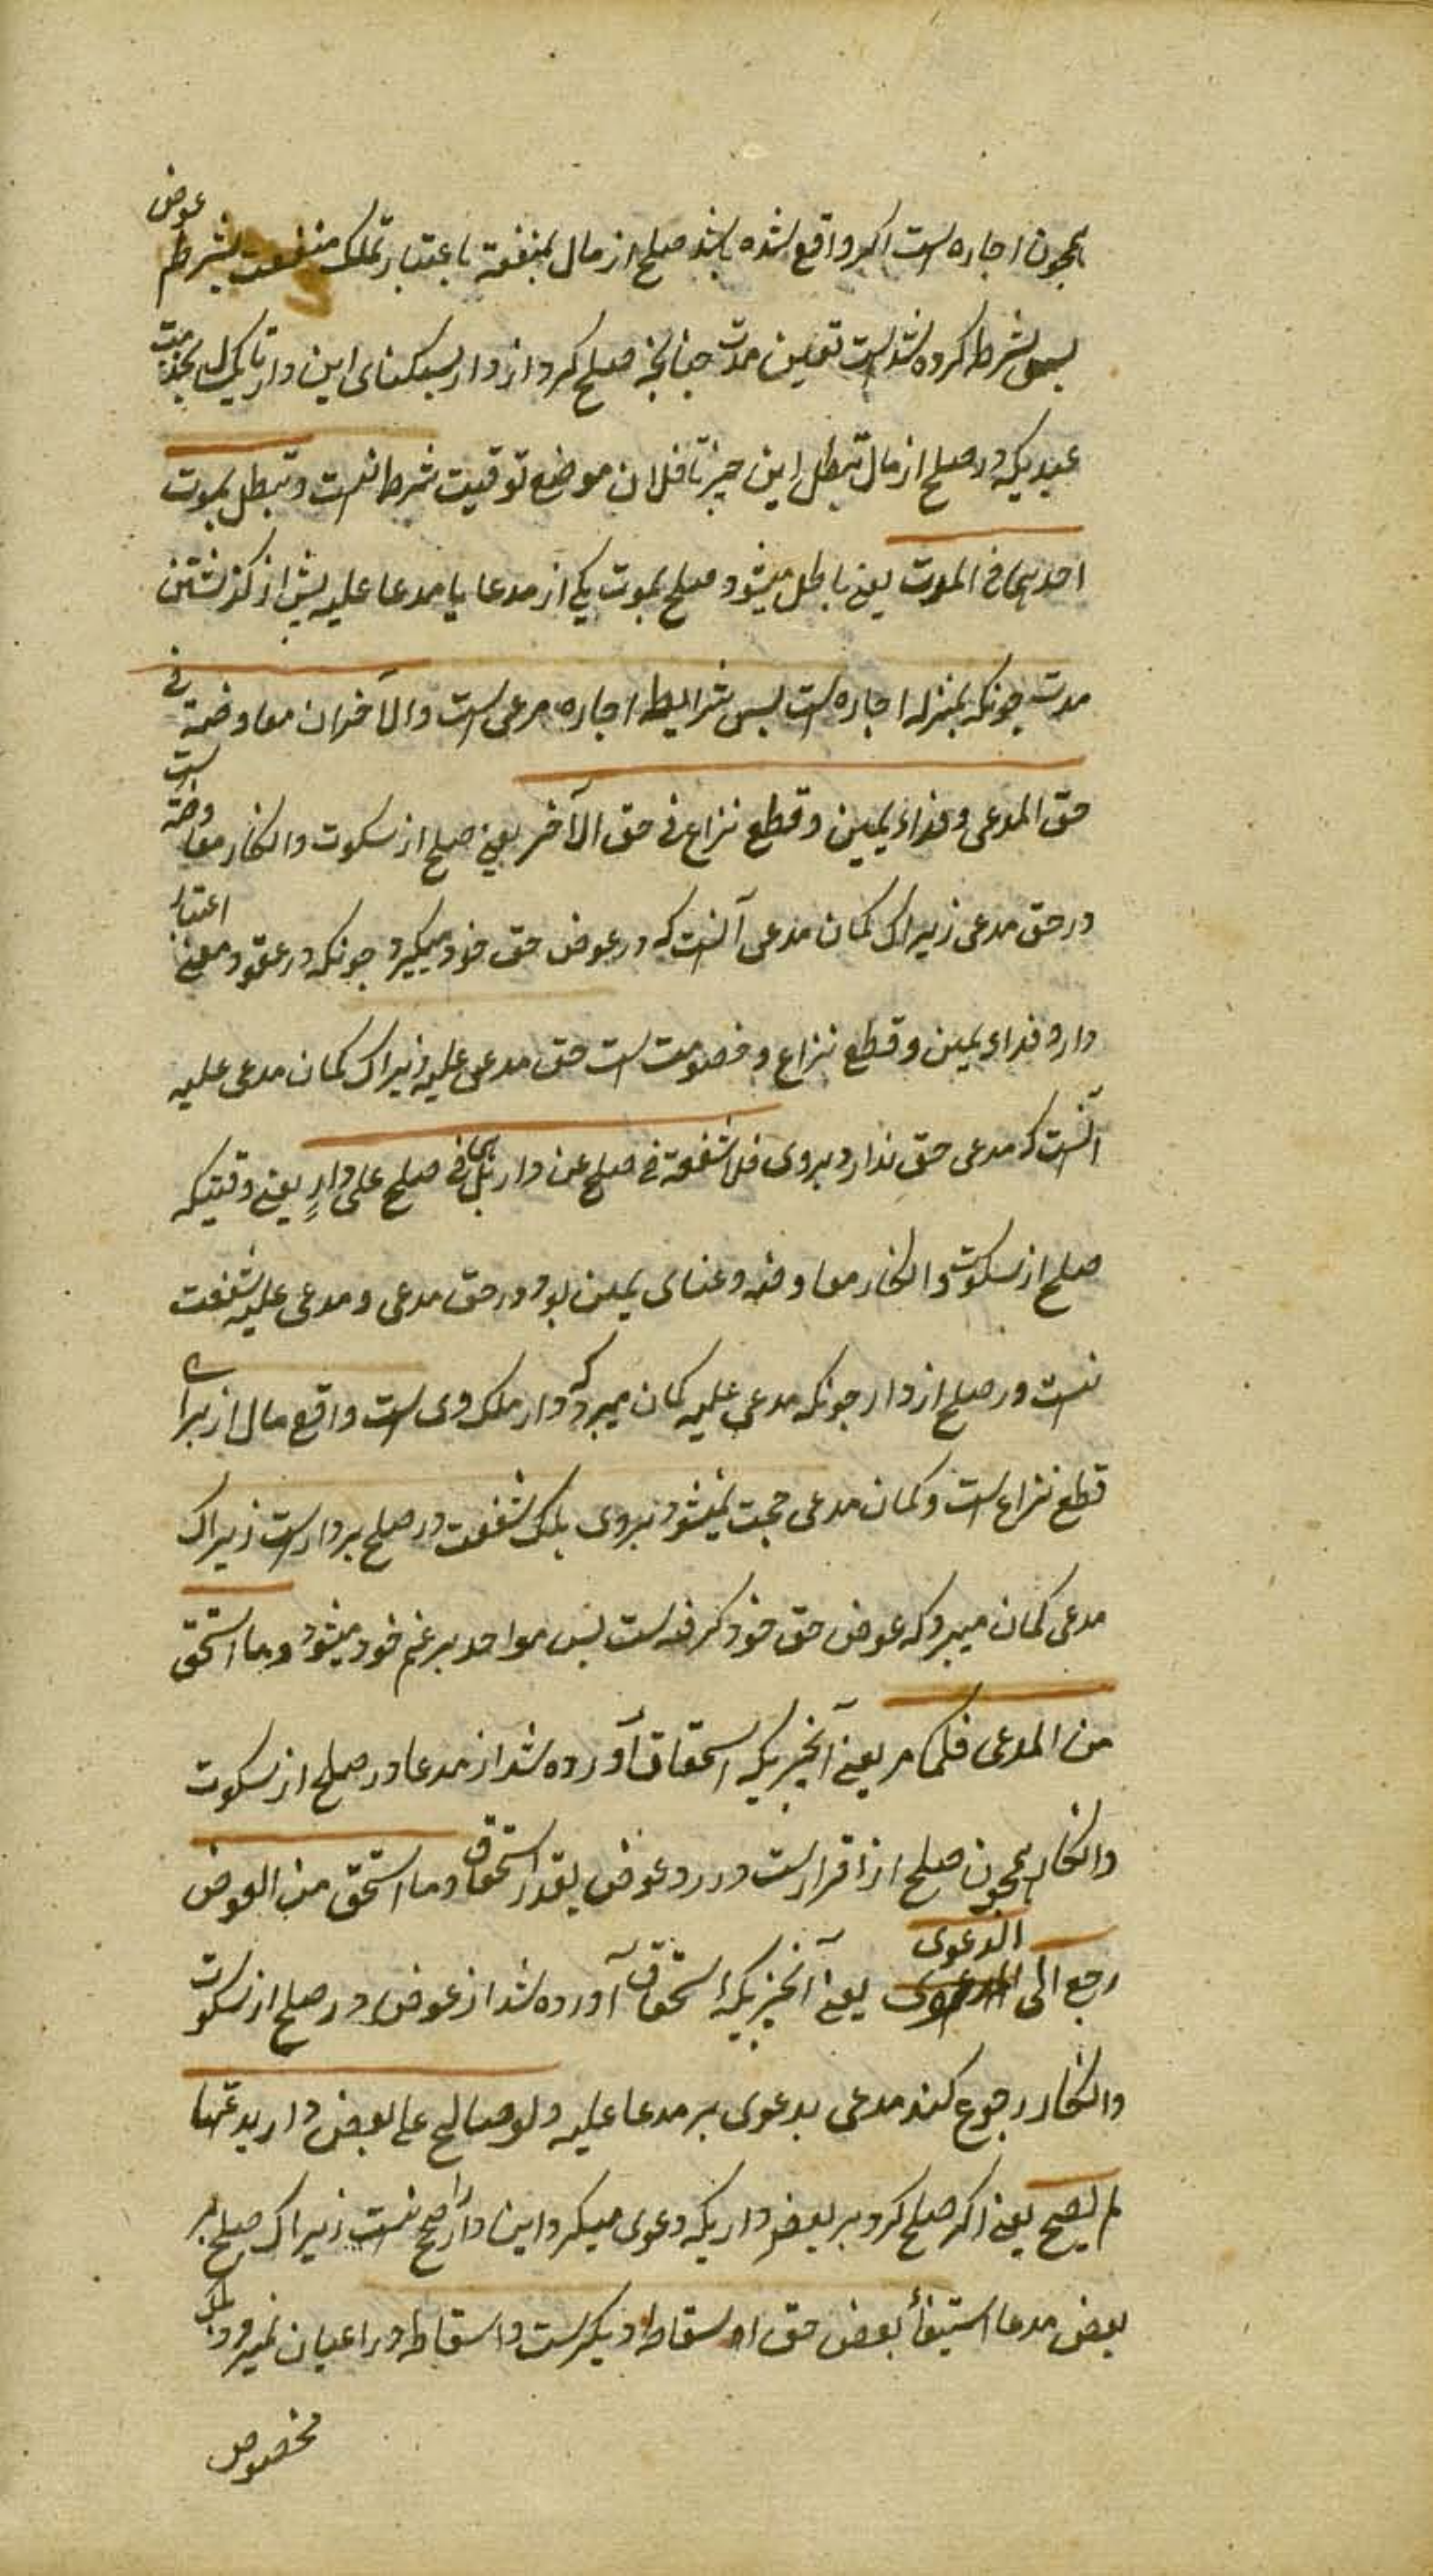 همچون اجاره است اکر واقع شده باشد صلح از مال بمنفعة باعتبار تملک منفعت بشرط عوض
پس شرط کرده شد است تعیین مدت چنانچه صلح کرد از دار بسکنای این دار تا یکسال بخدمت
عبدیکه در صلح از مال تبطل این چیز تا فلان موضع توقیت شرط نیست و تبطل بموت
احدهما فی المدت یعنی باطل میشود صلح بموت یکی از مدعا یا مدعا علیه پیش از کذشتن
مدت چونکه بمنزله اجاره است پس شرایط اجاره مرعی است والآخران معاوضة فی
حق المدعی وفداء یمین وقطع نزاع فی حق الآخر یعنی صلح از سکوت وانکار معاوضة است
در حق مدعی زیراک کمان مدعی آنست که در عوض حق خود میکیرد چونکه در عقود معنی اعتبار
دارد فداء یمین وقطع نزاع و خصومت است حق مدعی علیه زیراک کمان مدعی علیه
آنست که مدعی حق ندارد بروی فلا شفعة فی صلح عن دار بل فی صلح علی دارٍ یعنی وقتیکه
صلح از سکوت وانکار معاوضه وغنای یمین بود در حق مدعی و مدعی علیه شفعت
نیست در صلح از دار چونکه مدعی علیه کمان میبرد که دار ملک وی است واقع مال از برای
قطع نزاع است وکمان مدعی حجت نمیشود بروی بلک شفعت در صلح بر دار است زیراک
مدعی کمان میبرد که عوض حق خود کرفته است پس مواخد بزعم خود میشود وما استحق
من المدعی فلکما مر یعنی آنچیزیکه استحقاق آورده شد از مدعا در صلح از سکوت
وانکار همچون صلح از اقرار است در رد عوض بقدر استحقاق وما استحق من العوض
رجع الی الدعوی یعنی آنچیزیکه استحقاق آورده شد از عوض در صلح از سکوت
وانکار رجوع کند مدعی بدعوی بر مدعا علیه ولو صالح علی بعض دار یدعیها
لم یصح یعنی اکر صلح کرد بر بعض داریکه دعوی میکرد این دار را صحیح نیست زیراک صلح بر
بعض مدعا استیفأ بعض حق او اسقاط دیکرست واسقاط در اعیان نمیرود بلک
مخصوص